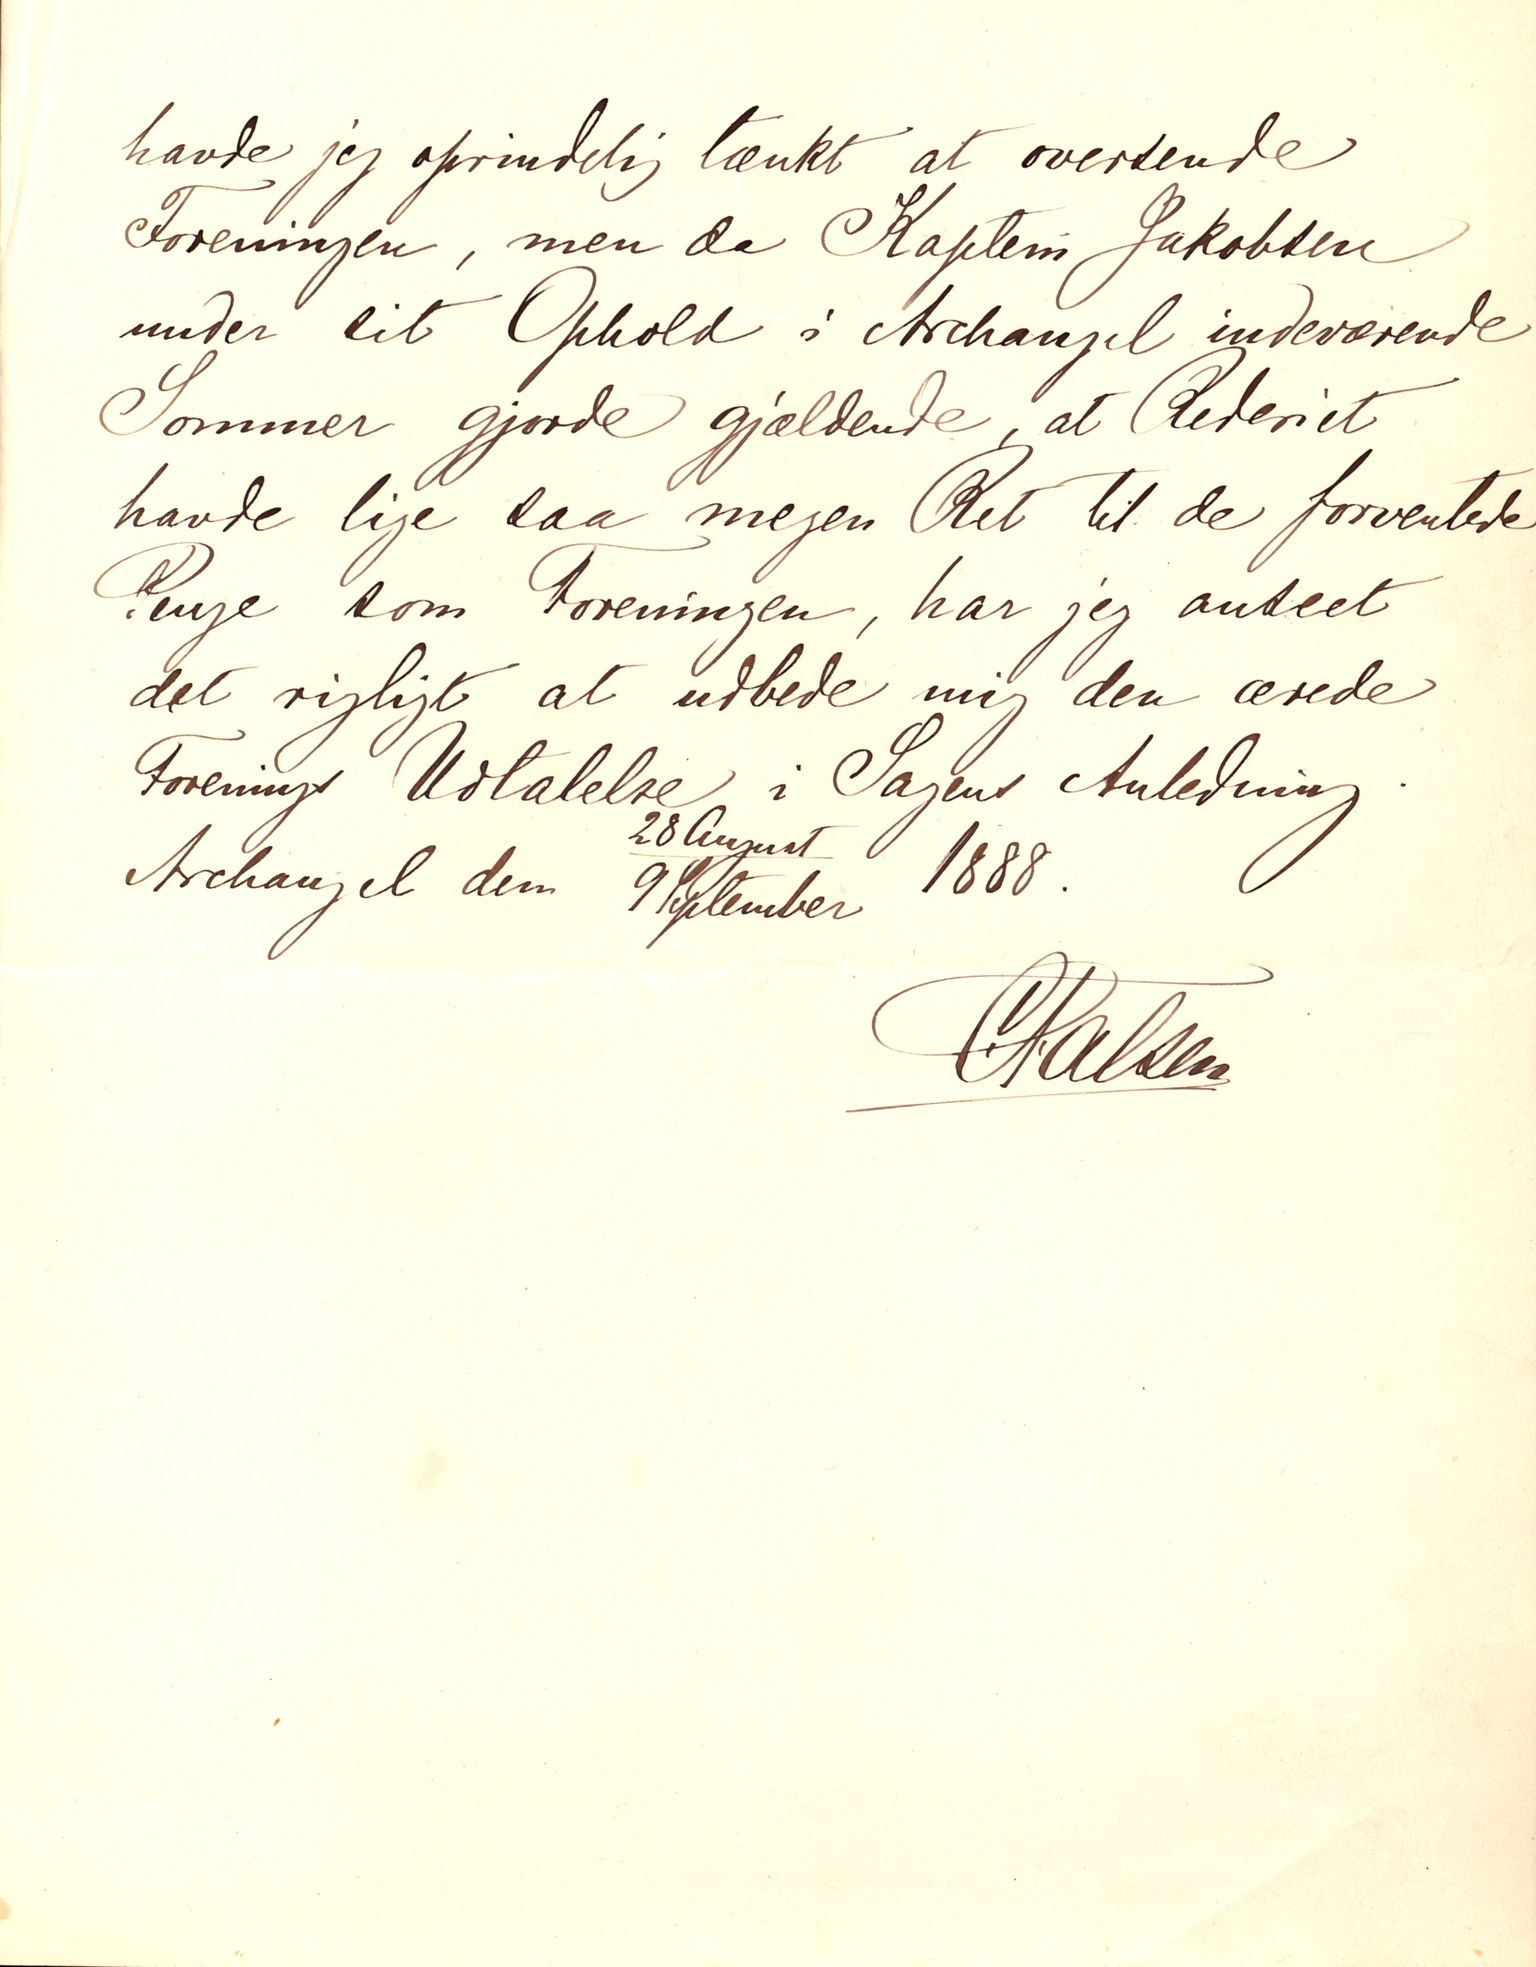 havde jeg oprindelig tænkt at oversende
Foreningen, men da Kaptein Jakobsen
under sit Ophold i Archangel indeværende
Sommer gjorde gjældende, at Rederiet
havde lige saa megen Ret til de forventede
Penge som Foreningen, har jeg anseet
det rigtigt at udbede mig den ærede
Forenings Udtalelse i Sagens Anledning.
28 August
Archangel dem 9 September 1888.
C Falsen